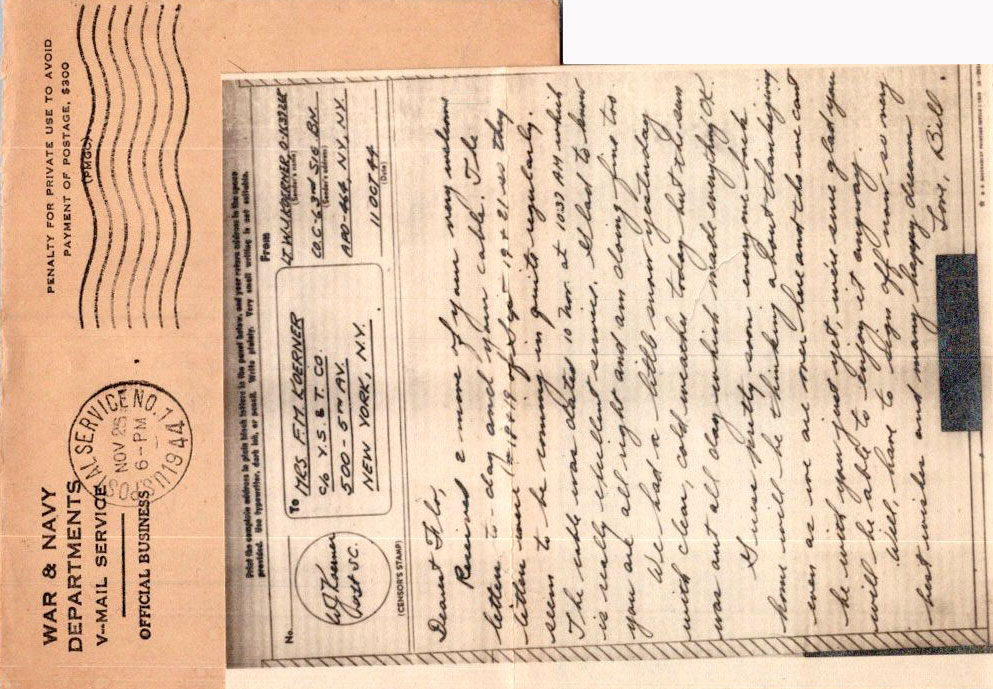 WAR & NAVY
DEPARTMENTS
V-MAIL SERVICE
OFFICIAL BUSINESS
U.S. POSTAL SERVICE NO. 1
NOV 25
6-PM
1944
PENALTY FOR PRIVATE USE TO AVOID
PAYMENT OF POSTAGE, $300
(PMGC)
Print the complete address in plain block letters in the panel below, and your return address in the space
provided. Use typewriter, dark ink, or pencil. Write plainly. Very small writing is not suitable.
No.
(CENSOR'S STAMP)
To
MRS. F.M. KOERNER
c/o Y.S. & T. CO.
500-5TH AV.
NEW YORK, N.Y.
From
LT W.J. KOERNER,
(Sender's name)
CO. C-63rd SIG BN
(Sender's address)
APO-464, NY, NY
11 OCT 44
(Date)
Dearest Flo,
Received 2 more of your very welcome
letters to-day and your cable. The
letters were 18+19 of Sept - 19 + 21 so they
seem to be coming in quite regularly.
The cable was dated 10 Nov. at 1037 AM which
is really excellent service. Glad to know
you are all right and am doing fine too.
We had a little snow yesterday
with clear, cold weather today but the sun
was out all day which made everything OK.
I guess pretty soon everyone back
home will be thinking about thanksgiving
even as we are over here and tho we cant
be with you just yet, we're sure glad you
will be able to enjoy it anyway.
Well, have to sign off now so very
best wishes and many happy dreams
Love, Bill.